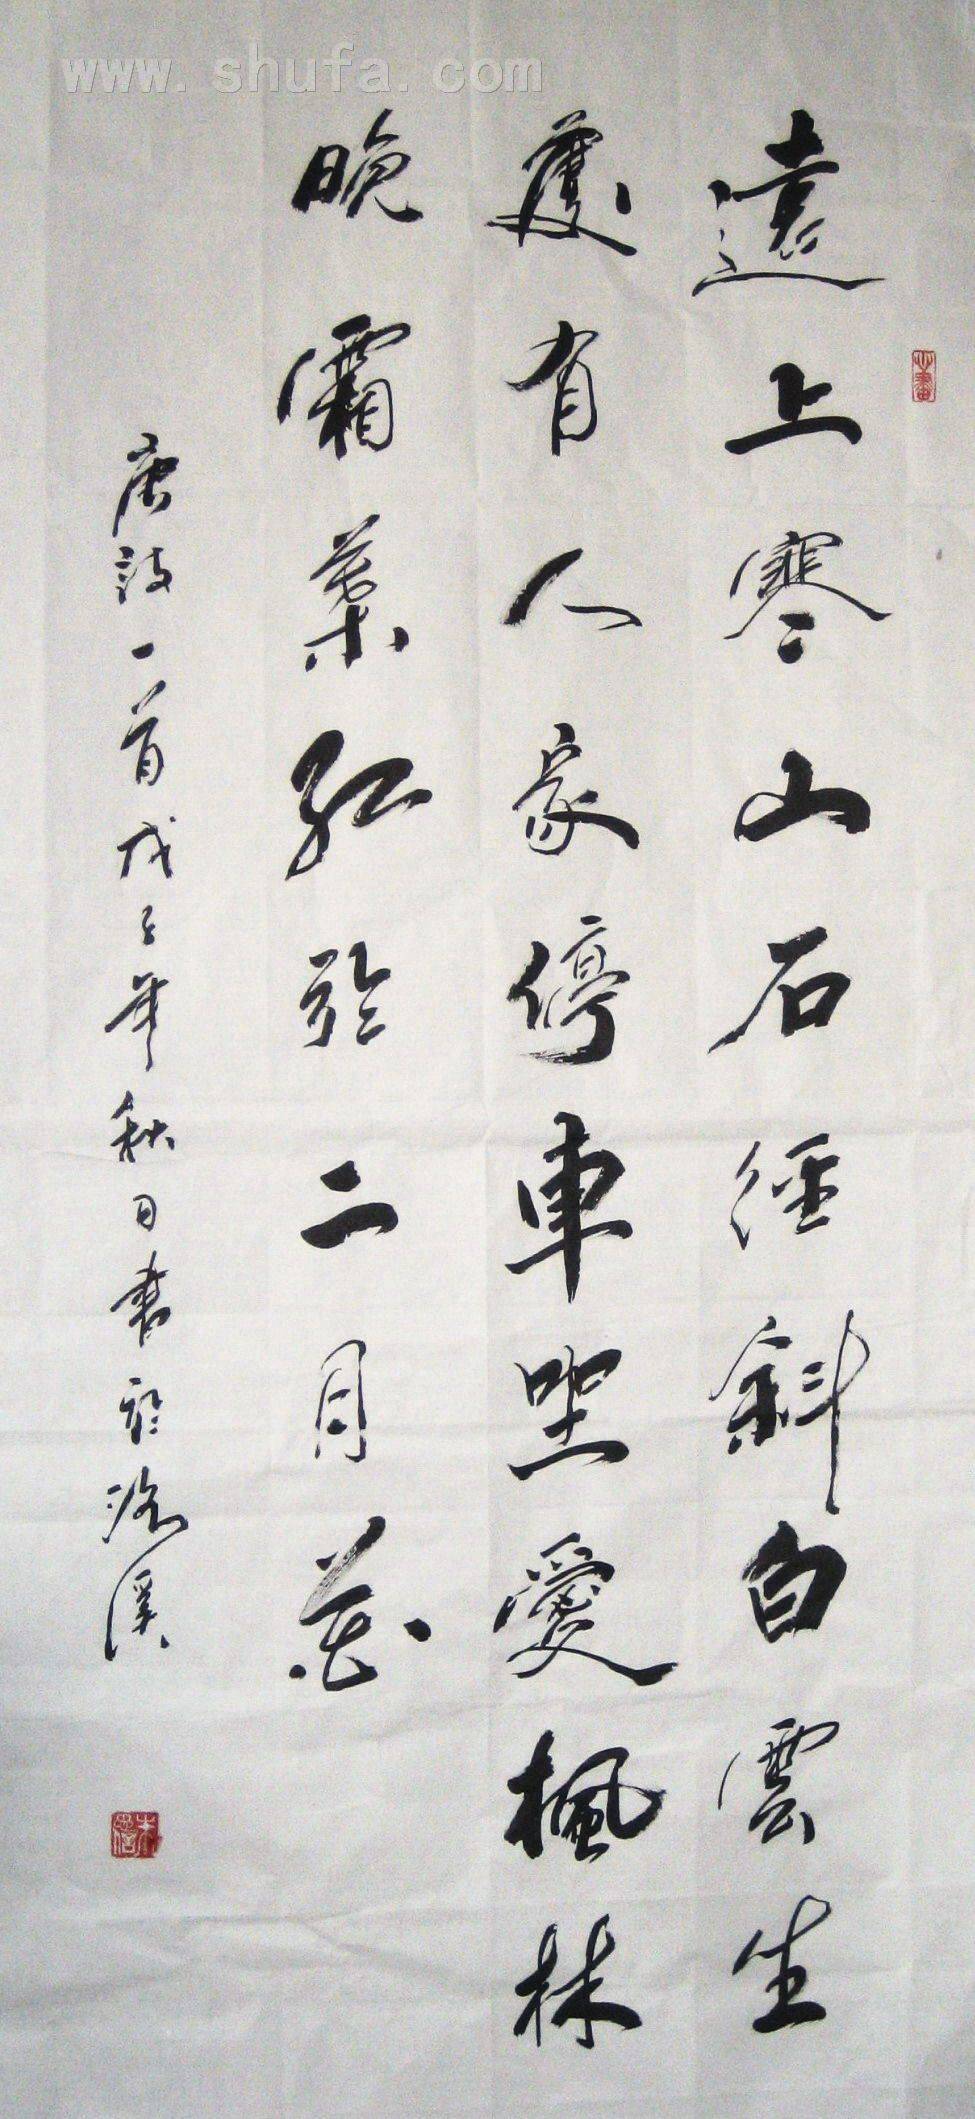 www.shufa.com
遠上寒山石徑斜白雲生
處有人家停車坐愛楓林
晚霜葉紅於二月花
唐詩一首戊子年秋日書於溪